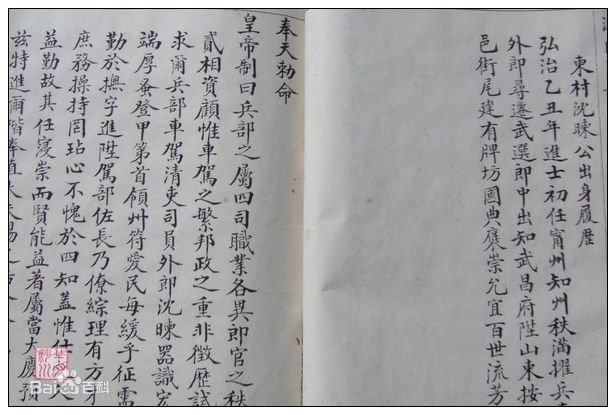 東村沈暕公出身履歷
弘治乙丑年進士初任甯州知州秩滿擢兵
外即尋遷武選郎中出知武昌府陞山東按
邑街尾建有牌坊國典襃崇允宜百世流芳
奉天勅命
皇帝制曰兵部之屬四司職業各異郎官之秩
貳相資顧惟車駕之繁邦政之重非徵歷試
求爾兵部車駕清吏司員外郎沈暕器識宏
端厚蚤登甲第首領州符愛民每緩于征需
勤於撫字進陞駕部佐長乃僚綜理有方
庶務操持罔玷心不愧於四知蓋惟仕
益勤故其任寖崇而賢能益著屬當大慶預
玆特進爾階奉直大夫錫之
Bai百科